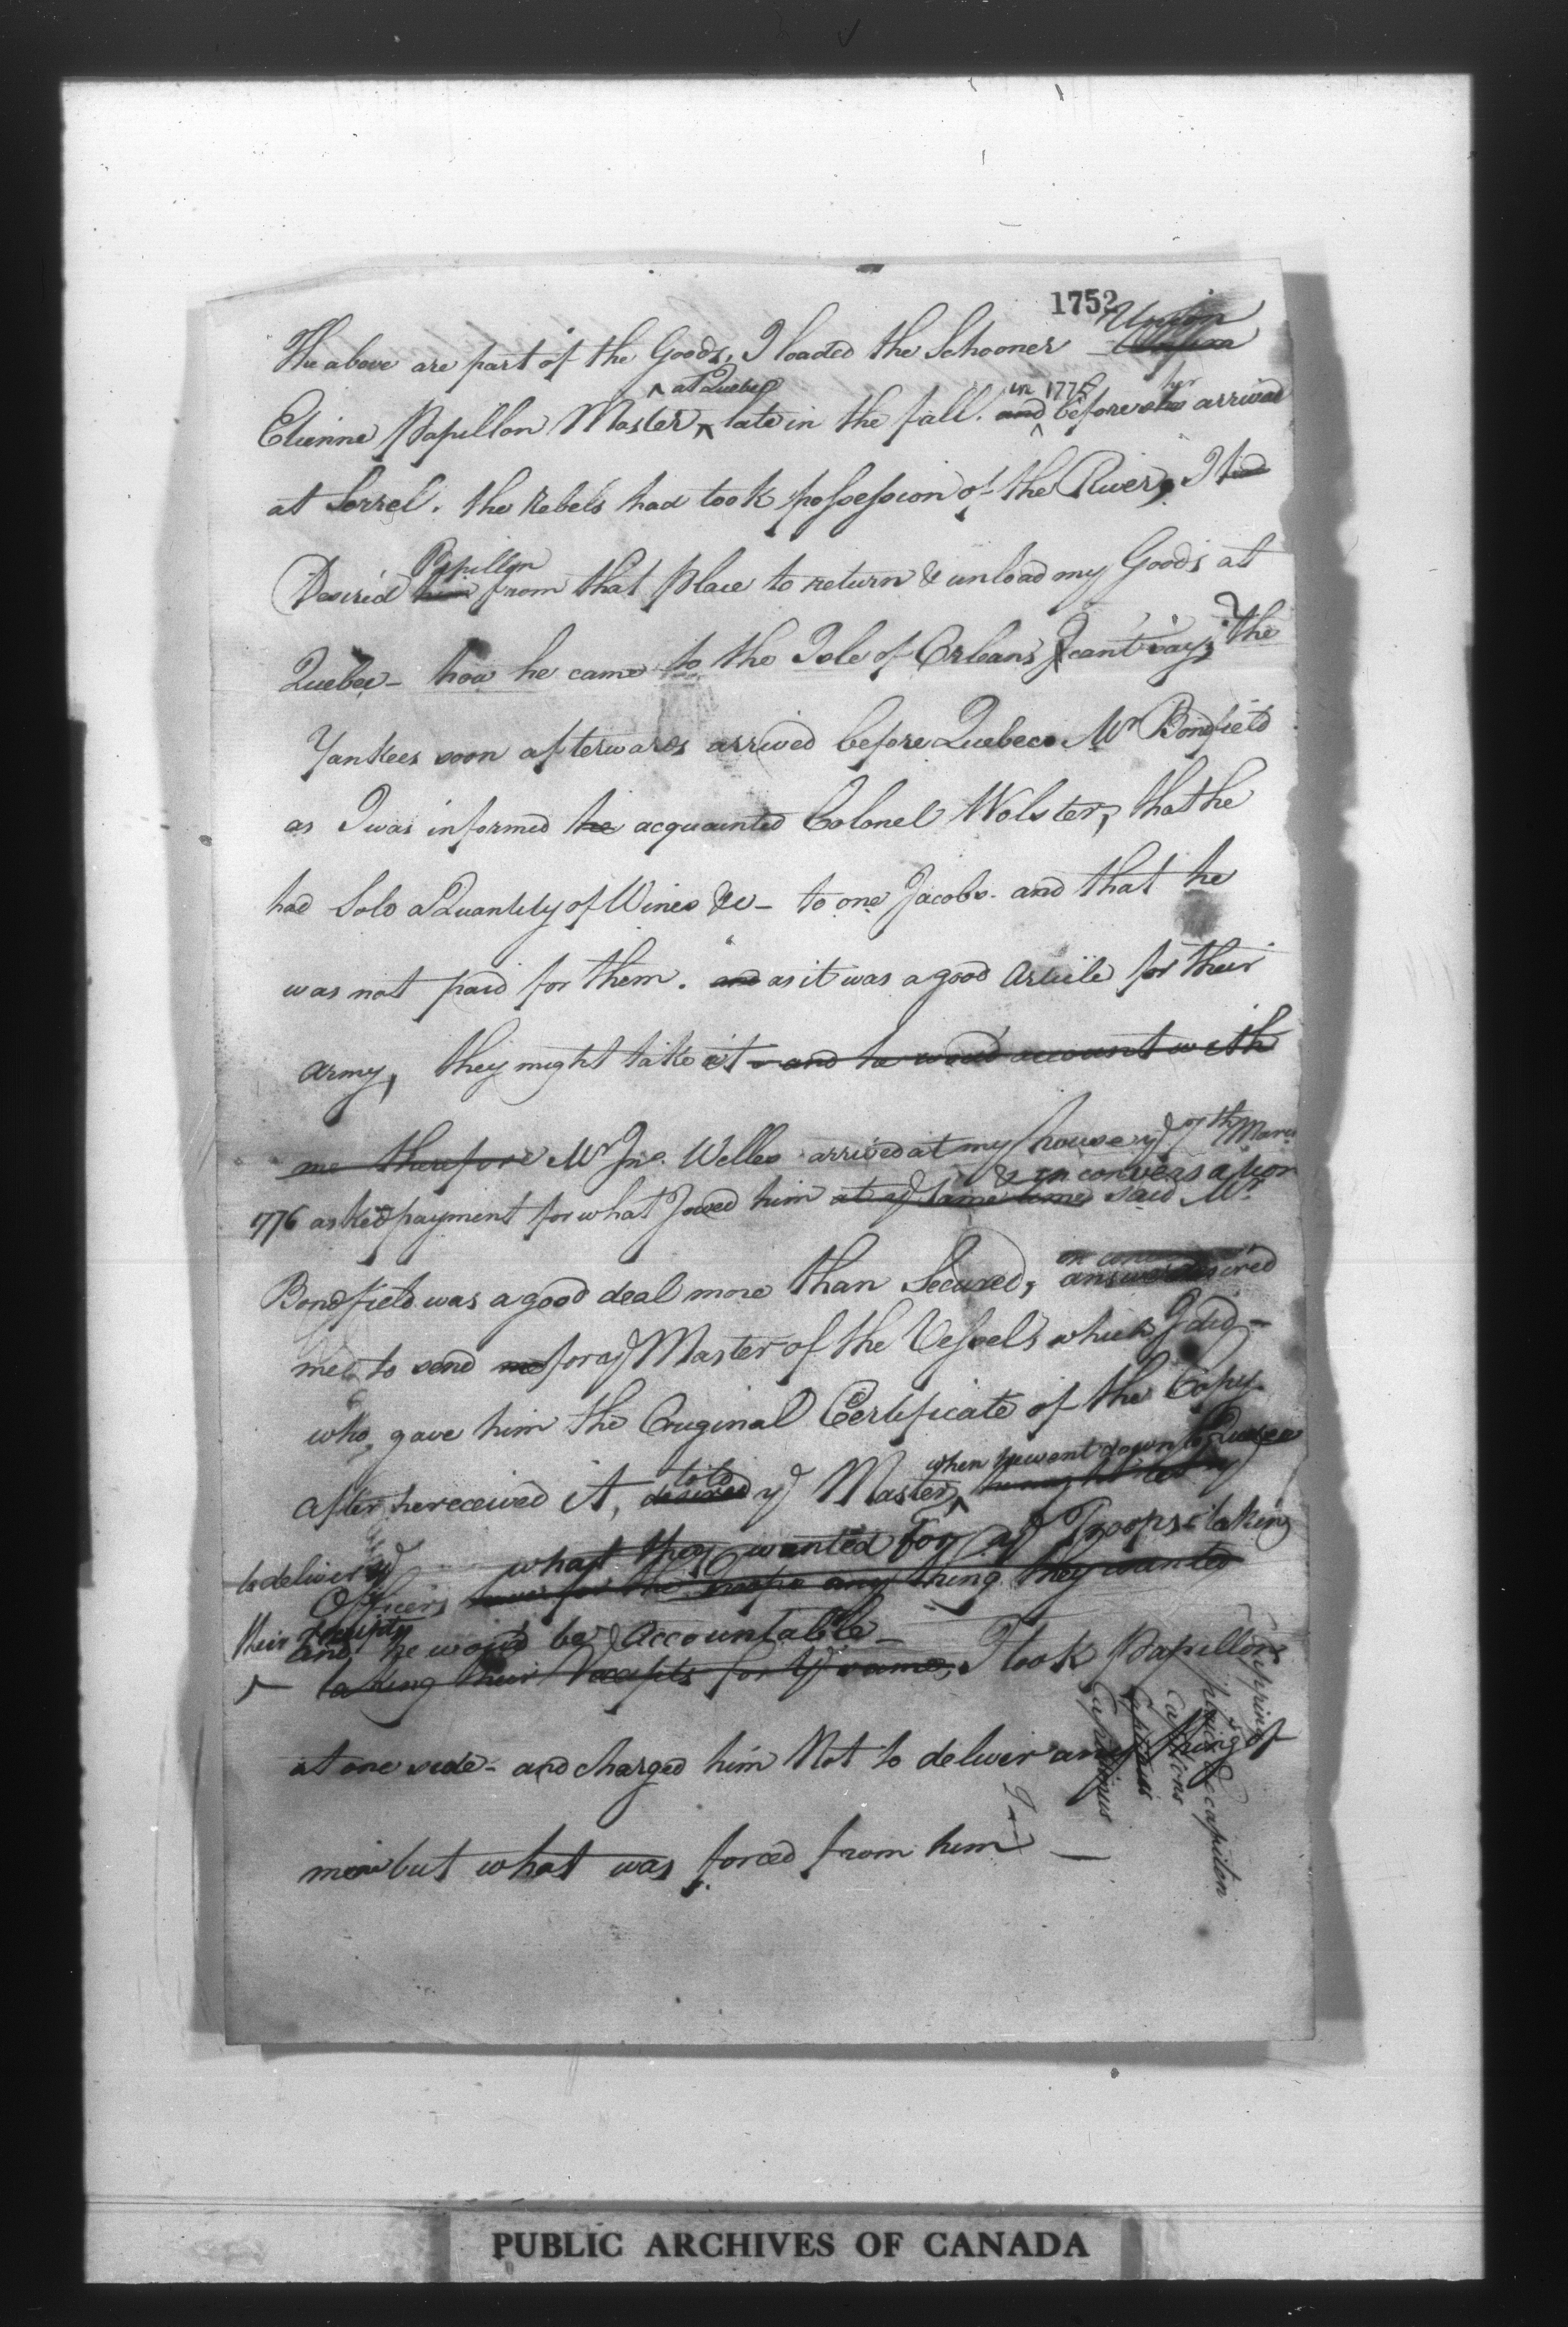 1752
Union
The above are part of the Goods, I loaded the Schooner
at Quebec in 1775 her
Etienne Papillon Master late in the fall. and before she arrived
at Sorrel. the Rebels had took possession of the River, I had
Papillon
Desired him from that place to return & unload my Goods at
Quebec - how he came to the Isle of Orleans I cant say; the
Yankees soon afterwards arrived before Quebec. Mr Bondfield
as I was informed he acquainted Colonel Wolster, that he
had Sold a Quantity of Wines &c - to one Jacobs. and that he
was not paid for them. and as it was a good Article for their
army, they might take it - and he would account with
me therefore Mr Jno. Welles arrived at my house ye 7th March
& in conversation
1776 asked payment for what I owed him at ye same time said Mr
Bondfield was a good deal more than Secured, desired
me to send me for ye Master of the Vessels which I did -
who gave him the Original Certificate of the Copy.
told when he went down to Quebec
after he received it, desired ye Master,
to deliver ye what they wanted for ye Troops taking
Officers for the Troops any thing they wanted
their receipts and he would be Accountable -
taking their Receipts for ye same, I took Papillon
at one side - and charged him Not to deliver any thing of
mine but what was forced from him -